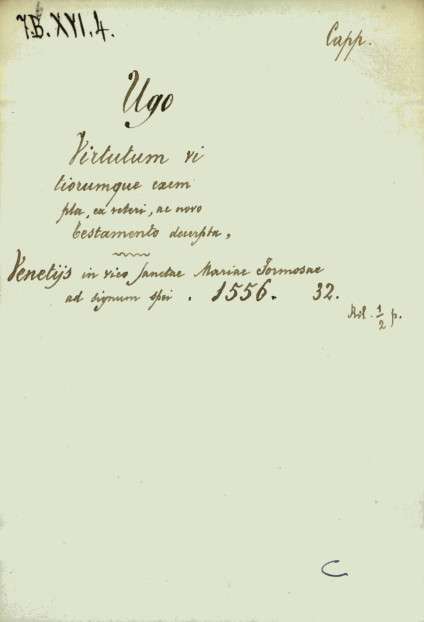 7.B.XVI.4.
Capp.
Ugo
Virtutum vi
tiorumque exem
pla, ex veteri, ac novo
testamento decerpta,
Venetijs in vico Sanctae Mariae Formosae
ad signum spei . 1556. 32.
1/2 p.
C